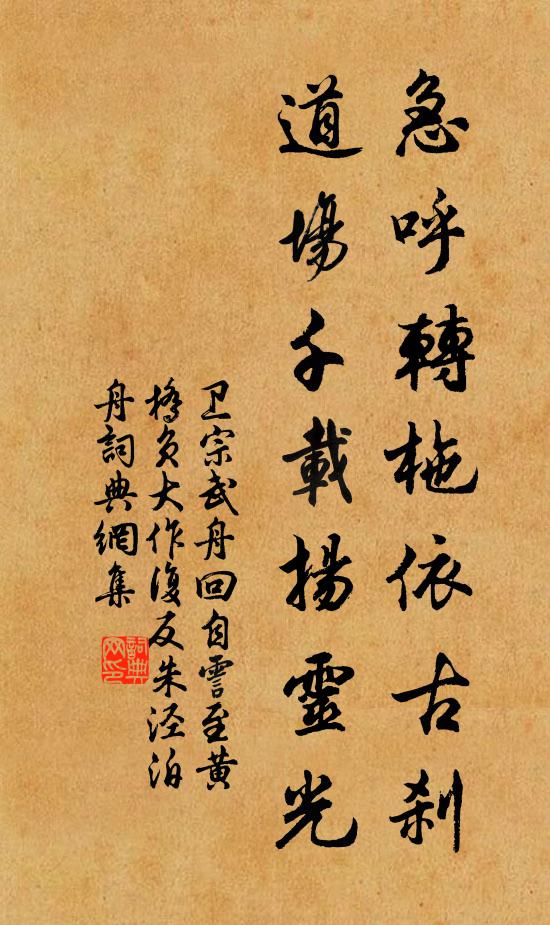 急呼轉柁依古刹
道場千載揚靈光
卫宗武舟回自霅至黄
橋負大作復反朱涇泊
舟詞典網集
詞典
网印